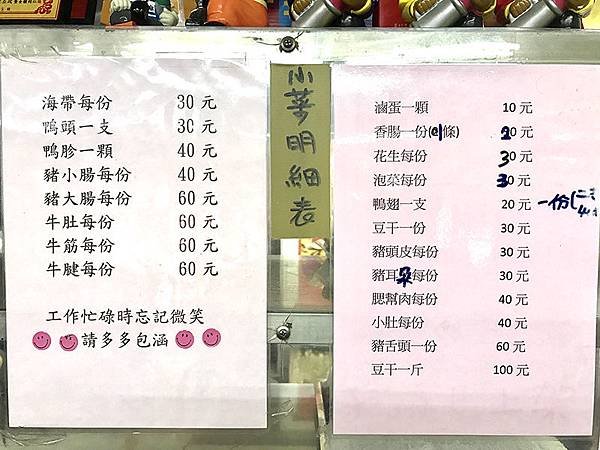 海帶每份 30元
鴨頭一支 30元
鴨胗一顆 40元
豬小腸每份 40元
豬大腸每份 60元
牛肚每份 60元
牛筋每份 60元
牛腱每份 60元
工作忙碌時忘記微笑
請多多包涵
小菜明細表
滷蛋一顆 10元
香腸一份(1條) 20元
花生每份 30元
泡菜每份 30元
鴨翅一支 20元 一份(二支
豆干一份 30元
豬頭皮每份 30元
豬耳朵每份 30元
腮幫肉每份 40元
小肚每份 40元
豬舌頭一份 60元
豆干一斤 100元